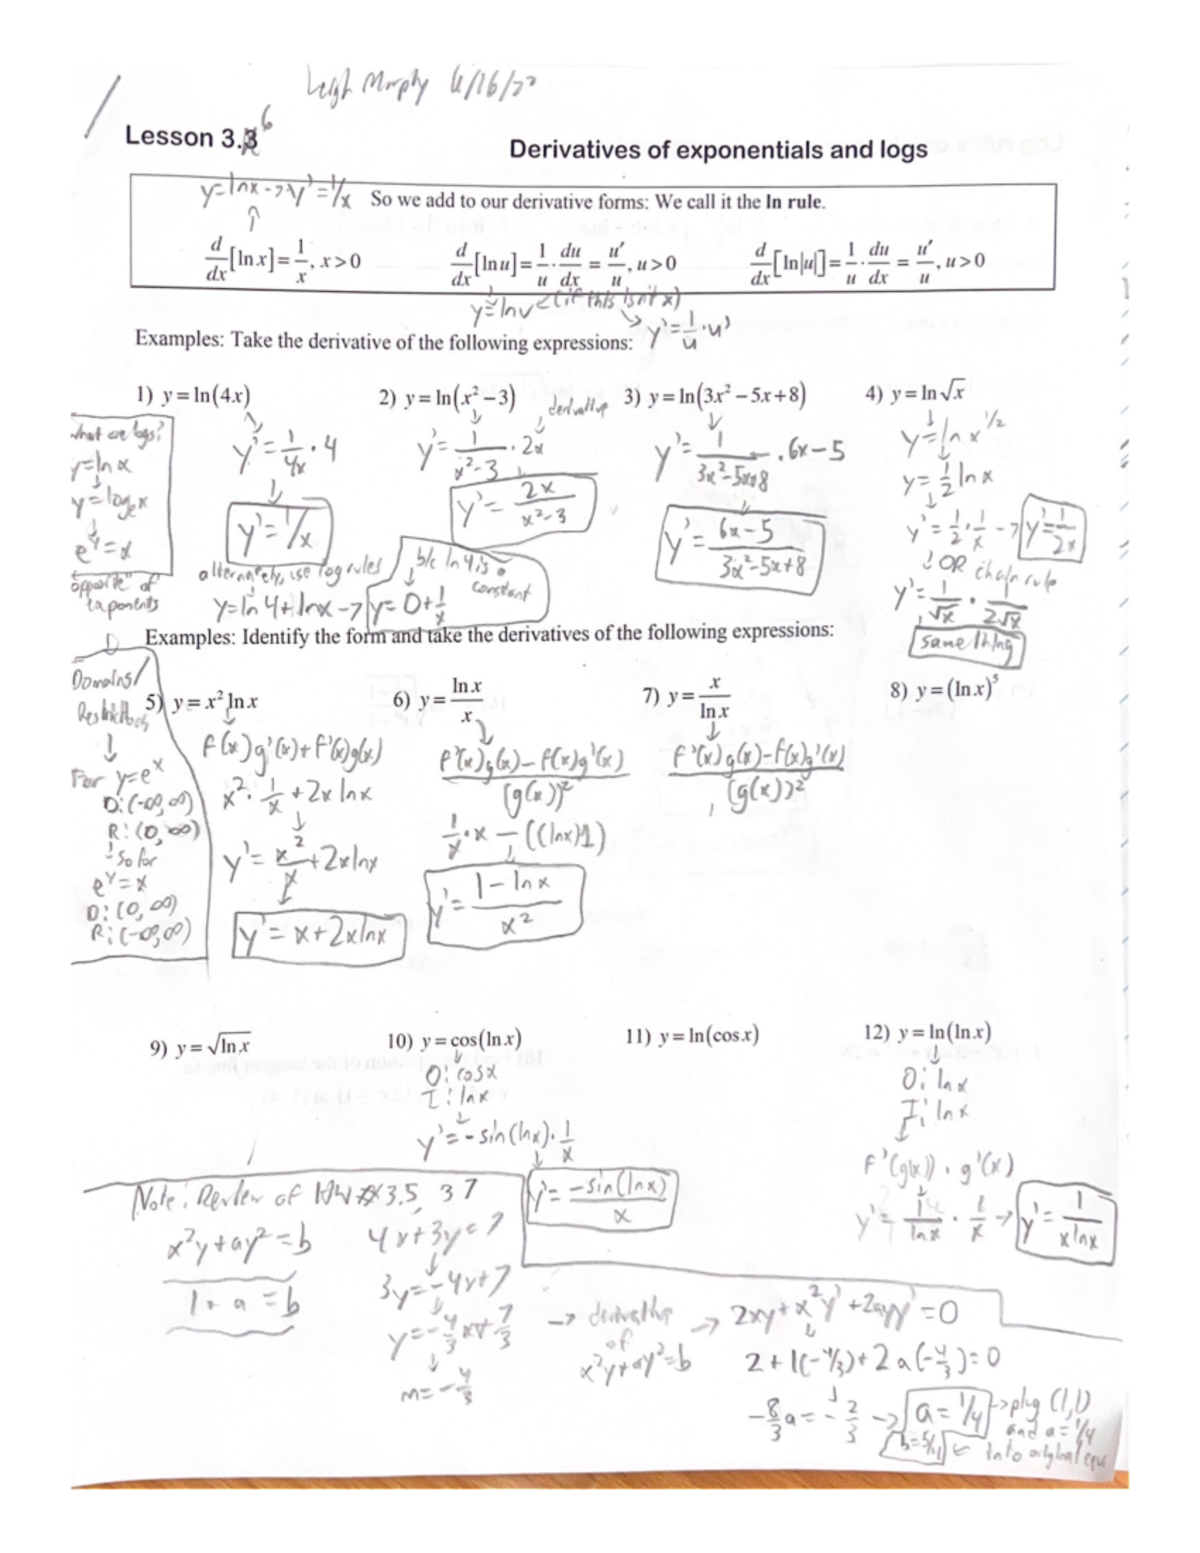 Leigh Morphy 6/16/20
Lesson 3.6
Derivatives of exponentials and logs
y=lnx→y'=1/x So we add to our derivative forms: We call it the ln rule.
d/dx[ln x]=1/x, x>0 d/dx[ln u]=1/u·du/dx=u'/u, u>0 d/dx[ln|u|]=1/u·du/dx=u'/u, u>0
y=lnu (if this isn't x)
→y'=1/u·u'
Examples: Take the derivative of the following expressions:
1) y=ln(4x)
y'=1/4x·4
y'=1/x
alternately, use log rules
y=ln4+lnx→y=0+1/x
b/c ln4 is a constant
What are logs?
y=lnx
y=logₑx
e^y=x
"opposite" of
exponents
2) y=ln(x²−3)
derivative
y'=1/x²-3·2x
y'=2x/x²-3
3) y=ln(3x²−5x+8)
y'=1/3x²-5x+8·6x-5
y'=6x-5/3x²-5x+8
4) y=ln√x
y=lnx^1/2
y=1/2 lnx
y'=1/2·1/x→y'=1/2x
OR chain rule
y'=1/√x·1/2√x
same thing
Examples: Identify the form and take the derivatives of the following expressions:
Domains/
Restrictions
For y=e^x
D:(-∞,∞)
R:(0,∞)
So for
e^y=x
D:(0,∞)
R:(-∞,∞)
5) y=x² ln x
f(x)g'(x)+f'(x)g(x)
x²·1/x+2x lnx
y'=x²/x+2xlnx
y'=x+2xlnx
6) y=ln x/x
f'(x)g(x)-f(x)g'(x)/(g(x))²
1/x·x-((lnx)1)
y'=1-lnx/x²
7) y=x/ln x
f'(x)g(x)-f(x)g'(x)/(g(x))²
8) y=(ln x)⁵
9) y=√ln x
10) y=cos(ln x)
O: cosx
I: lnx
y'=-sin(lnx)·1/x
y'=-sin(lnx)/x
11) y=ln(cos x)
12) y=ln(ln x)
O: lnx
I: lnx
f'(g(x))·g'(x)
y'=1/lnx·1/x→y'=1/xlnx
Note: Review of HW 3.5, 37
x²y+ay²=b
1+a=b
4x+3y=7
3y=-4x+7
y=-4/3x+7/3
m=-4/3
→ derivative
of
x²y+ay²=b
→ 2xy+x²y'+2ayy'=0
2+1(-4/3)+2a(-4/3)=0
-8/3a=-2/3→a=1/4→plug (1,1)
and a=1/4
b=5/4 ← into original equ